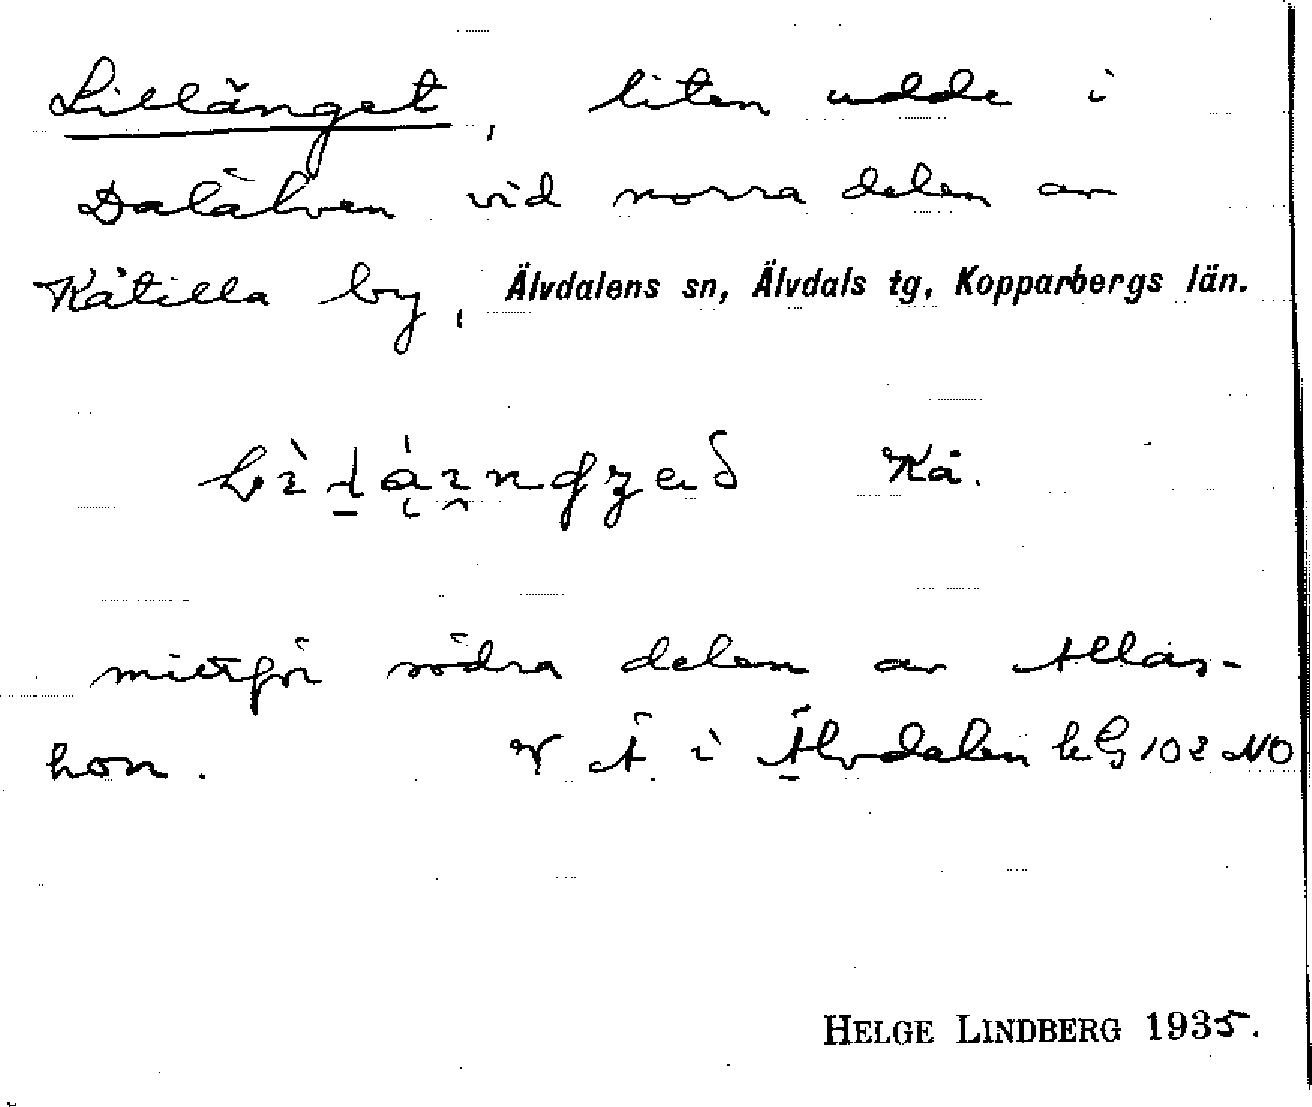 Lillänget, liten udde i
Dalälven vid norra delen av
Kåtilla by, Älvdalens sn, Älvdals tg, Kopparbergs län.
Kå.
mittför södra delen av Allas-
hon. V Ä i Älvdalen bG 102 NO
HELGE LINDBERG 1935.